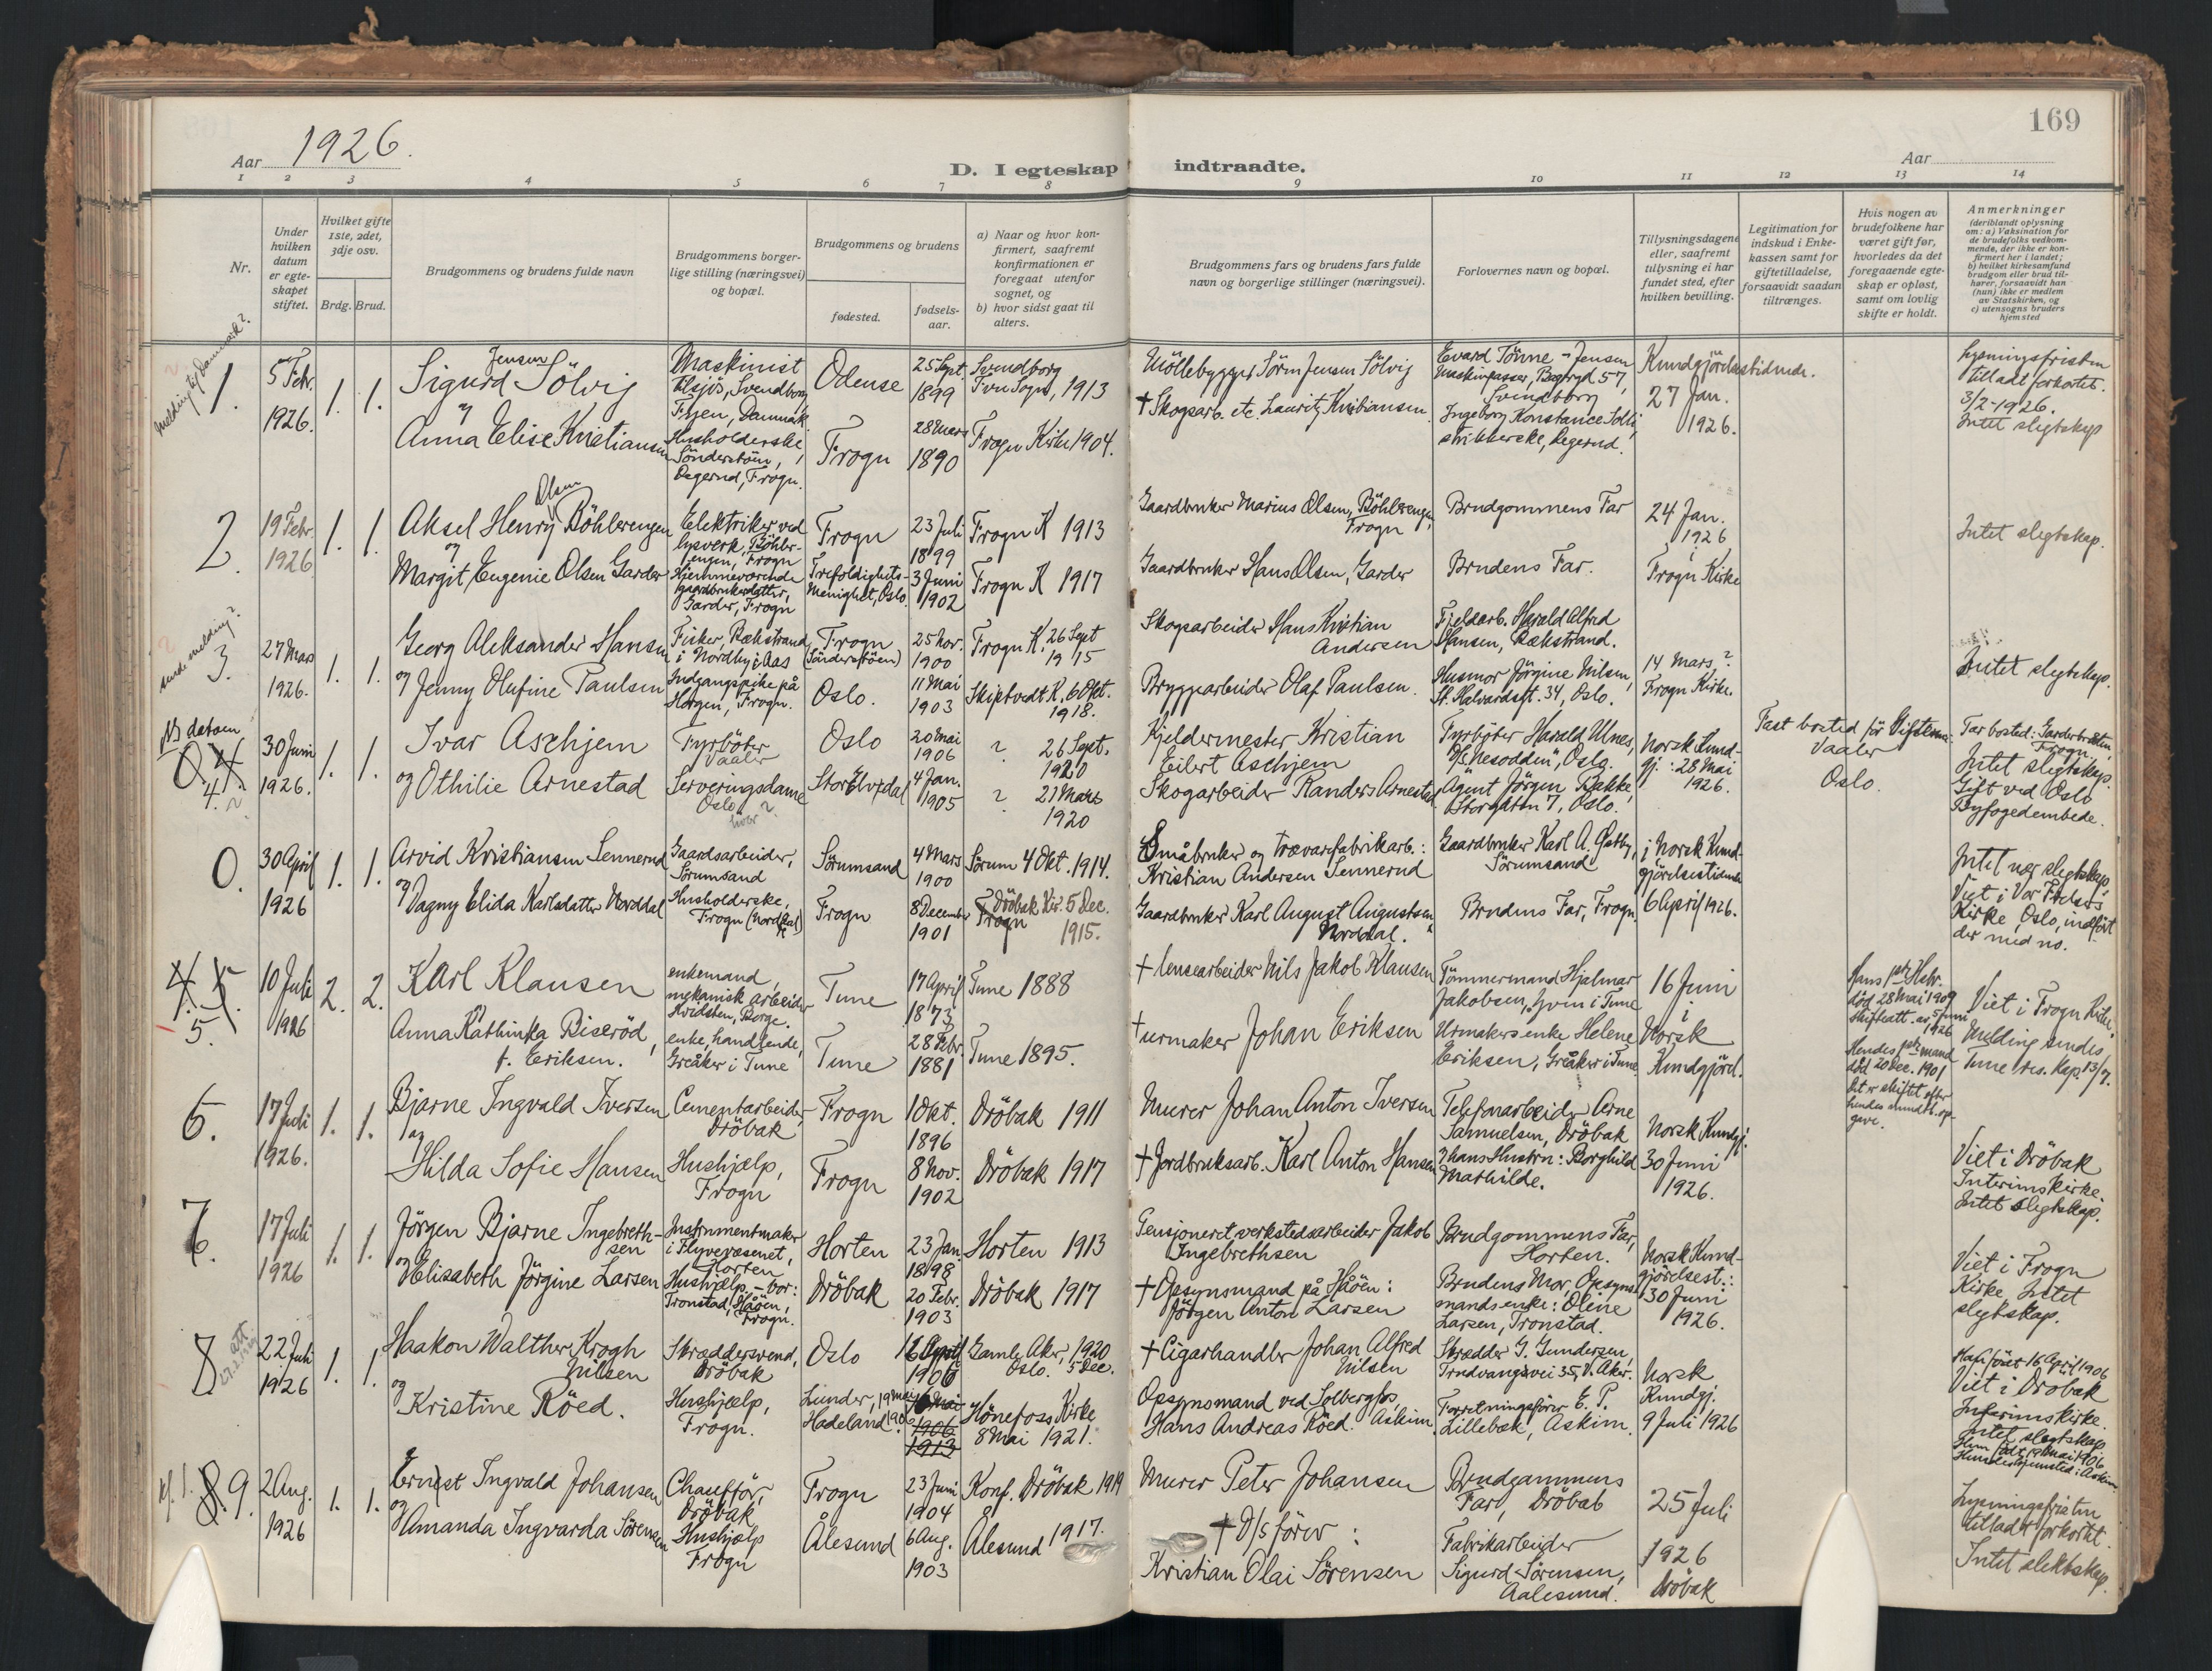 169
Aar 1926.
D. I egteskap indtraadte.
Aar
1 2 3 4 5 6 7 8 9 10 11 12 13 14
Nr.
Under hvilken datum er egte-skapet stiftet.
Hvilket gifte 1ste, 2det, 3dje osv.
Brdg. Brud.
Brudgommens og brudens fulde navn
Brudgommens borger-lige stilling (næringsvei) og bopæl.
Brudgommens og brudens
fødested.
fødsels-aar.
a) Naar og hvor kon-firmert, saafremt konfirmationen er foregaat utenfor sognet, og
b) hvor sidst gaat til alters.
Brudgommens fars og brudens fars fulde navn og borgerlige stillinger (næringsvei).
Forlovernes navn og bopæl.
Tillysningsdagene eller, saafremt tillysning ei har fundet sted, efter hvilken bevilling.
Legitimation for indskud i Enke-kassen samt for giftetilladelse, forsaavidt saadan tiltrænges.
Hvis nogen av brudefolkene har været gift før, hvorledes da det foregaaende egte-skap er opløst, samt om lovlig skifte er holdt.
Anmerkninger
(deriblandt oplysning om: a) Vaksination for de brudefolks vedkom-mende, der ikke er kon-firmert her i landet;
b) hvilket kirkesamfund brudgom eller brud til-hører, forsaavidt han (hun) ikke er medlem av Statskirken, og
c) utensogns bruders hjemsted
melding til Danmark?
1. 5 Febr. 1926. 1. 1.
Sigurd Jensen Sölvig
og
Anna Elise Kristiansen
Maskinist
tilsjös, Svendborg
Fyen, Danmark.
Husholderske,
Sönderstöen,
Degernd, Frogn.
Odense 25 Sept. 1899
Frogn 28 Mars 1890
Svendborg
Frue Sogn, 1913
Frogn Kirke 1904.
Möllebygger Sören Jensen Sölvig
† Skogsarb. etc. Lauritz Kristiansen
Evard Tönne-Jensen
Maskinpasser, Bagergd 57,
Svendborg
Ingeborg Konstance Solli,
strikkerske, Degernd.
Kundgjörelsestidende.
27 Jan.
1926.
Lysningsfristen
tilladt forkortet.
3/2-1926.
Intet slegtskap
2. 19 Febr. 1926 1. 1.
Aksel Henry Olsen Böhlerengen
og
Margit Eugenie Olsen Garder
Elektriker ved
lysverk, Böhler-
engen, Frogn
Hjemmeværende
gaardbrukerdatter,
Garder, Frogn
Frogn 23 Juli 1899
Trefoldigheds-
Menighet, Oslo. 3 Juni 1902
Frogn K 1913
Frogn K 1917
Gaardbruker Marius Olsen, Böhlerengen,
Frogn
Gaardbruker Hans Olsen, Garder
Brudgommens Far
Brudens Far.
24 Jan.
1926
i
Frogn Kirke
Intet slegtskap.
sendt melding?
3. 27 Mars 1926. 1. 1.
Georg Aleksander Hansen
og Jenny Olufine Paulsen
Fisker, Bækstrand
i Nordby i Aas
Indgangspike på
Horgen, Frogn.
Frogn
(Sönderstöen) 25 Nov. 1900
Oslo. 11 Mai 1903
Frogn K. 26 Sept
1915
Skiptvedt K. 6 Okt.
1918.
Skogsarbeider Hans Kristian
Andersen
Bryggearbeider Olaf Paulsen.
Fjeldarb. Harald Alfred
Hansen, Bækstrand.
Husmor Jörgine Nilsen,
St. Halvardsgt. 34, Oslo.
14 Mars ?
Frogn Kirke.
Intet slegtskap.
NB datoen
0. 4. 30 Juni 1926. 1. 1.
Ivar Aschjem
og Othilie Arnestad
Fyrböter
Vaaler
Serveringsdame
Oslo ?
hvor
Oslo 20 Mai 1906
Stor Elvedal 4 Jan. 1905
? 26 Sept.
1920
? 21 Mars
1920
Kjeldermester Kristian
Eilert Aschjem
Skogarbeider Randers Arnestad
Fyrböter Harald Ulnes,
D/s "Nesodden", Oslo.
Agent Jörgen Bakke,
Storgaten 7, Oslo.
Norsk Kund-
gj.: 28 Mai
1926.
Fast bosted för Viftermaa:
Vaaler
Oslo.
Far bosted: Garderbraaten,
Frogn
Intet slegtskap.
Gift ved Oslo
Byfogedembede.
0. 30 April 1926 1. 1.
Arvid Kristiansen Sennerud
og
Dagny Elida Karlsdatter Norddal
Gaardsarbeider,
Sörumsand
Husholderske,
Frogn (Norddal)
Sörumsand 4 Mars 1900
Frogn 8 December 1901
Sörum 4 Okt. 1914.
Dröbak Kir. 5 Dec.
Frogn 1915.
Småbruker og trævarefabrikarb.:
Kristian Andersen Sennerud
Gaardbruker Karl August Augustsen
Norddal.
Gaardbruker Karl A. Sætby,
Sörumsand
Brudens Far, Frogn.
i Norsk Kund-
gjörelsestidende
6 April 1926.
Intet nær slegtskap.
Viet i Vor Frelsers
Kirke, Oslo, indfört
der med no.
4. 5. 5. 10 Juli 1926 2. 2.
Karl Klausen
og
Anna Kathinka Biseröd,
f. Eriksen.
enkemand,
mekanisk arbeider
Kridsten, Borge.
enke, handlende,
Greåker i Tune
Tune 17 April 1873
Tune 28 Febr. 1881
Tune 1888
Tune 1895.
† lensearbeider Nils Jakob Klausen
† urmaker Johan Eriksen
Tömmermand Hjalmar
Jakobsen, Hvin i Tune
Urmakersenke Helene
Eriksen, Greåker i Tune
16 Juni
i
Norsk
Kundgjörel.
Hans 1ste Hebr.
död 28 Mai 1909
skifteatt. av 5 Juni
1926
Hendes 1ste mand
död 20 Dec. 1901
Det er skiftet efter
hendes mundtl. op-
gave.
Viet i Frogn Kirke.
Melding sendes
Tune res. Kap. 13/7.
6. 17 Juli 1926. 1. 1.
Bjarne Ingvald Iversen
og
Hilda Sofie Hansen
Cementarbeider,
Dröbak
Hushjælp,
Frogn
Frogn 1 Okt. 1896
Frogn 8 Nov. 1902
Dröbak 1911
Dröbak 1917
Murer Johan Anton Iversen
† Jordbruksarb. Karl Anton Hansen
Telefonarbeider Arne
Samuelsen, Dröbak
& hans Hustru: Borghild
Mathilde.
Norsk Kundgj.
30 Juni
1926.
Viet i Dröbak
Interimskirke.
Intet slegtskap.
7. 17 Juli 1926 1. 1.
Jörgen Bjarne Ingebreth-
sen
og
Elisabeth Jörgine Larsen
Instrumentmaker
i Flyvevæsenet,
Horten
Hushjælp, - bor:
Tronstad, Håöen,
Frogn.
Horten 23 Jan. 1898
Dröbak 20 Febr. 1903
Horten 1913
Dröbak 1917
Pensjoneret verkstedsarbeider Jakob
Ingebrethsen
† Opsynsmand på Håöen:
Jörgen Anton Larsen
Brudgommens Far,
Horten.
Brudens Mor, Opsyns-
mandsenke: Oline
Larsen, Tronstad.
Norsk Kund-
gjörelsest.:
30 Juni
1926.
Viet i Frogn
Kirke, Intet
slegtskap.
8 att. 22 Juli 1926 1. 1.
Haakon Walther Krogh
Nilsen
og
Kristine Röed.
Skræddersvend,
Dröbak
Hushjælp,
Frogn.
Oslo 16 April 1906
Lunder, 19 Mai
Hadeland 1906 1906 1913
Gamle Aker, 1920
Oslo. 5 Dec.
Hönefoss Kirke
8 Mai 1921.
† Cigarhandler Johan Alfred
Nilsen
Opsynsmand ved Solbergfos,
Hans Andreas Röed. Askim.
Skrædder G. Gundersen,
Trudvangsvei 35, V. Aker.
Forretningsförer E. P.
Lillebæk, Askim.
Norsk
Kundgj.
9 Juli 1926
Han födt 16 April 1906
Viet i Dröbak
Interimskirke.
Intet slegtskap
Hun födt 19 Mai 1906
Hendes hjemsted: Askim
8. 9. 2 Aug. 1926 1. 1.
Ernst Ingvald Johansen
og
Amanda Ingvarda Sörensen
Chaufför,
Dröbak
Hushjælp
Frogn
Frogn 23 Juni 1904
Ålesund 6 Aug. 1903
Konf. Dröbak 1919
Ålesund 1917.
Murer Peter Johansen
† D/s förer:
Kristian Olai Sörensen
Brudgommens
Far, Dröbak
Fabrikarbeider
Sigurd Sörensen,
Aalesund.
25 Juli
1926
Dröbak
Lysningsfristen
tilladt forkortet.
Intet slektskap.